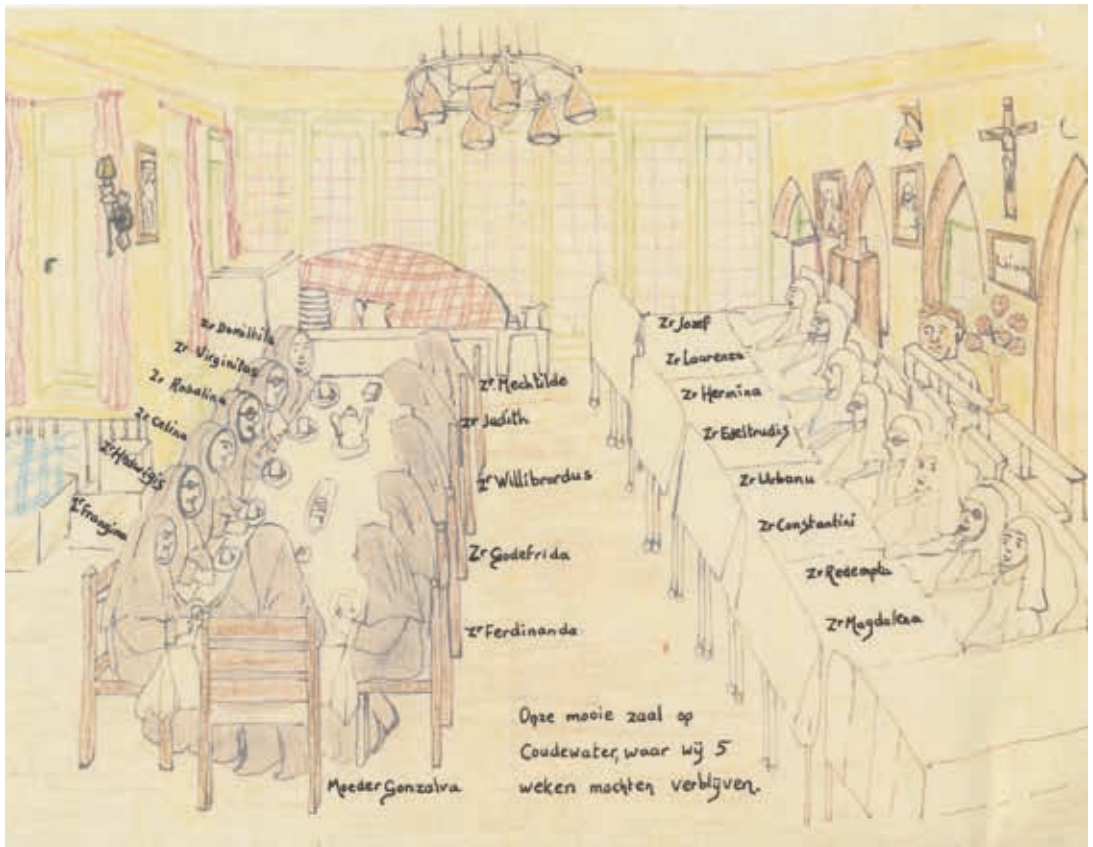 Zr Domitilla
Zr Virginitas
Zr Rosalina
Zr Celina
Zr Hedwigis
Zr Frangina
Zr Mechtilde
Zr Judith
Zr Willibrordus
Zr Godefrida
Zr Ferdinanda
Moeder Gonzalva
Zr Jozef
Zr Laurenza
Zr Hermina
Zr Edeltrudis
Zr Urbanu
Zr Constantini
Zr Redempta
Zr Magdalena
Onze mooie zaal op
Coudewater, waar wij 5
weken mochten verblijven.